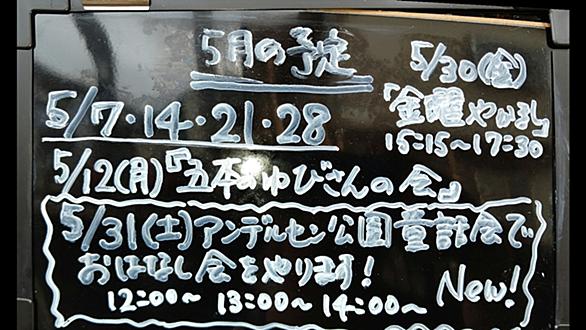 5月の予定
5/30(金)
「金曜やかまし」
15:15〜17:30
5/7・14・21・28
5/12(月)「五本のゆびさんの会」
5/31(土)アンデルセン公園童話会で
おはなし会をやります!
New!
12:00〜 13:00〜 14:00〜